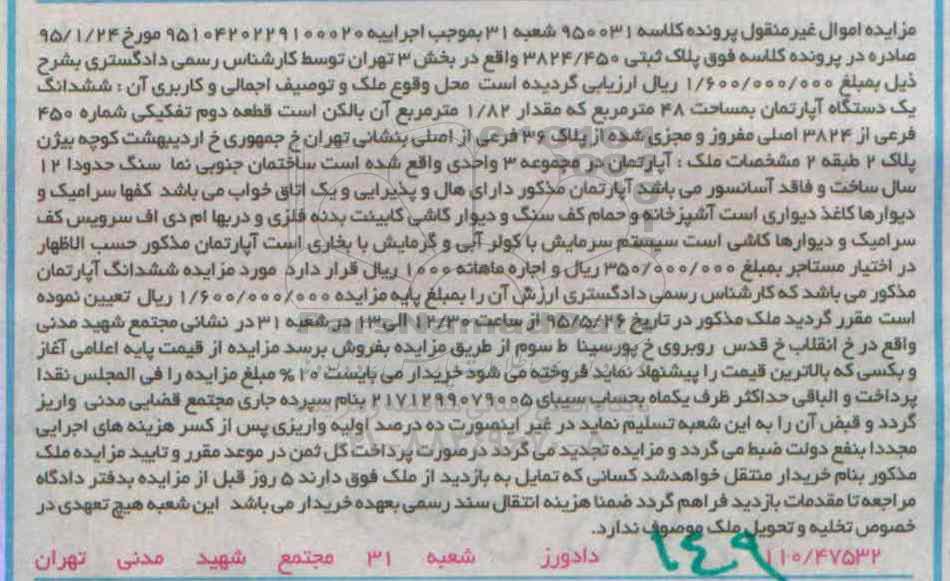 مزایده اموال غیر منقول پرونده کلاسه ۹۵۰۰۳۱ شعبه ۳۱ بموجب اجراییه ۹۵۱۰۴۲۰۲۲۹۱۰۰۰۲۰ مورخ ۹۵/۱/۲۴
صادره در پرونده کلاسه فوق پلاک ثبتی ۳۸۲۴/۴۵۰ واقع در بخش ۳ تهران توسط کارشناس رسمی دادگستری بشرح
ذیل بمبلغ ۱/۶۰۰/۰۰۰/۰۰۰ ریال ارزیابی گردیده است محل وقوع ملک و توصیف اجمالی و کاربری آن : ششدانگ
یک دستگاه آپارتمان بمساحت ۴۸ مترمربع که مقدار ۱/۸۲ مترمربع آن بالکن است قطعه دوم تفکیکی شماره ۴۵۰
فرعی از ۳۸۲۴ اصلی مفروز و مجزی شده از پلاک ۳۶ فرعی از اصلی بنشانی تهران خ جمهوری خ اردیبهشت کوچه بیژن
پلاک ۲ طبقه ۲ مشخصات ملک : آپارتمان در مجموعه ۳ واحدی واقع شده است ساختمان جنوبی نما سنگ حدودا ۱۲
سال ساخت و فاقد آسانسور می باشد آپارتمان مذکور دارای هال و پذیرایی و یک اتاق خواب می باشد کفها سرامیک و
دیوارها کاغذ دیواری است آشپزخانه و حمام کف سنگ و دیوار کاشی کابینت بدنه فلزی و دربها ام دی اف سرویس کف
سرامیک و دیوارها کاشی است سیستم سرمایش با کولر آبی و گرمایش با بخاری است آپارتمان مذکور حسب الاظهار
در اختیار مستاجر بمبلغ ۳۵۰/۰۰۰/۰۰۰ ریال و اجاره ماهانه ۱۰۰۰ ریال قرار دارد مورد مزایده ششدانگ آپارتمان
مذکور می باشد که کارشناس رسمی دادگستری ارزش آن را بمبلغ پایه مزایده ۱/۶۰۰/۰۰۰/۰۰۰ ریال تعیین نموده
است مقرر گردید ملک مذکور در تاریخ ۹۵/۵/۲۶ از ساعت ۱۲/۳۰ الی ۱۳ در شعبه ۳۱ در نشانی مجتمع شهید مدنی
واقع در خ انقلاب خ قدس روبروی خ پورسینا ط سوم از طریق مزایده بفروش برسد مزایده از قیمت پایه اعلامی آغاز
و بکسی که بالاترین قیمت را پیشنهاد نماید فروخته می شود خریدار می بایست ۱۰ % مبلغ مزایده را فی المجلس نقدا
پرداخت و الباقی حداکثر ظرف یکماه بحساب سیبای ۲۱۷۱۲۹۹۰۷۹۰۰۵ بنام سپرده جاری مجتمع قضایی مدنی واریز
گردد و قبض آن را به این شعبه تسلیم نماید در غیر اینصورت ده درصد اولیه واریزی پس از کسر هزینه های اجرایی
مجددا بنفع دولت ضبط می گردد و مزایده تجدید می گردد در صورت پرداخت کل ثمن در موعد مقرر و تایید مزایده ملک
مذکور بنام خریدار منتقل خواهد شد کسانی که تمایل به بازدید از ملک فوق دارند ۵ روز قبل از مزایده بدفتر دادگاه
مراجعه تا مقدمات بازدید فراهم گردد ضمنا هزینه انتقال سند رسمی بعهده خریدار می باشد این شعبه هیچ تعهدی در
خصوص تخلیه و تحویل ملک موصوف ندارد.
۱۱۰/۴۷۵۳۲ ۱۴۹ دادورز شعبه ۳۱ مجتمع شهید مدنی تهران